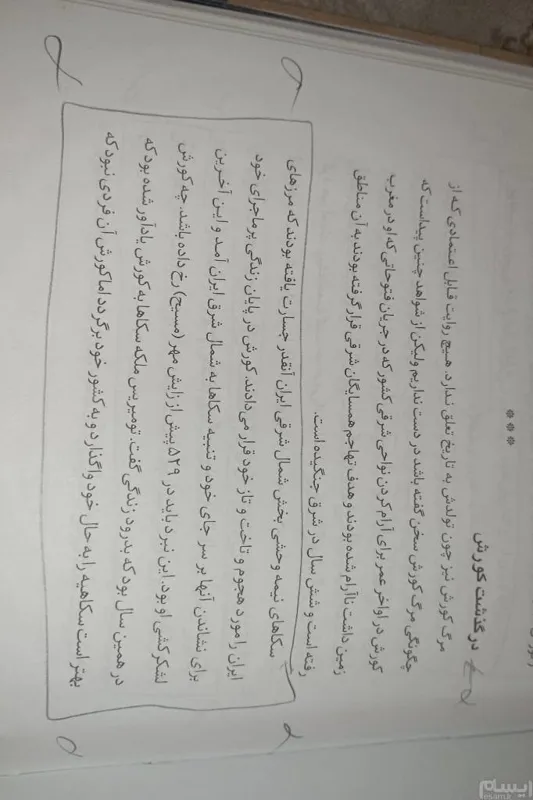 ***
درگذشت کورش
مرگ کورش نیز چون تولدش به تاریخ تعلق ندارد. هیچ روایت قابل اعتمادی که از
چگونگی مرگ کورش سخن گفته باشد در دست نداریم ولیکن از شواهد چنین پیداست که
کورش در اواخر عمر برای آرام کردن نواحی شرقی کشور که در جریان فتوحاتی که او در مغرب
زمین داشت ناآرام شده بودند و هدف تهاجم همسایگان شرقی قرار گرفته بودند به آن مناطق
رفته است و شش سال در شرق جنگیده است.
سکاهای نیمه وحشی بخش شمال شرقی ایران آنقدر جسارت یافته بودند که مرزهای
ایران را مورد هجوم و تاخت و تاز خود قرار می‌دادند. کورش در پایان زندگی پرماجرای خود
برای نشاندن آنها بر سر جای خود و تنبیه سکاها به شمال شرق ایران آمد و این آخرین
لشکرکشی او بود. این نبرد باید در ۵۲۹ پیش از زایش مهر (مسیح) رخ داده باشد. چه کورش
در همین سال بود که بدرود زندگی گفت. تومیریس ملکه سکاها به کورش یادآور شده بود که
بهتر است سکاهیه را به حال خود واگذارد و به کشور خود برگردد اما کورش آن فردی نبود که
ایسام
esam.ir